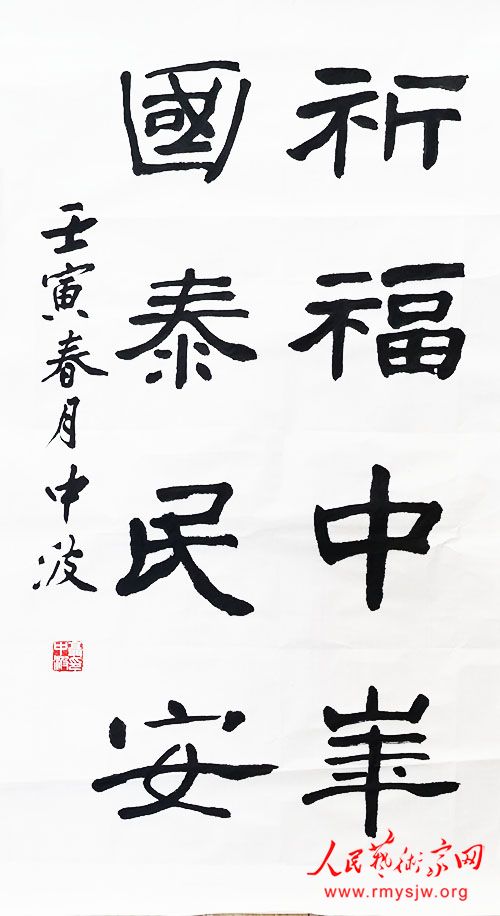 祈福中華
國泰民安
壬寅春月中波
人民藝術家网
www.rmysjw.org